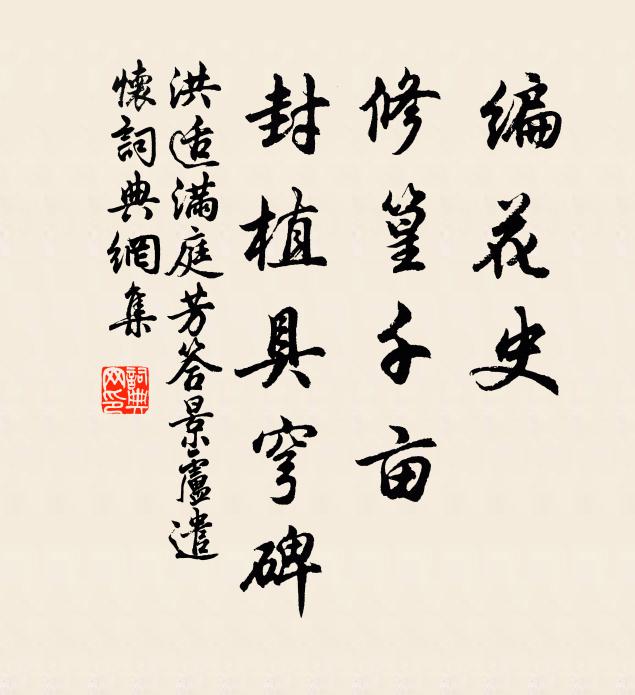 编花史
修篁千亩
封植具穹碑
洪适满庭芳答景盧遣
懷詞典網集
詞典
网印